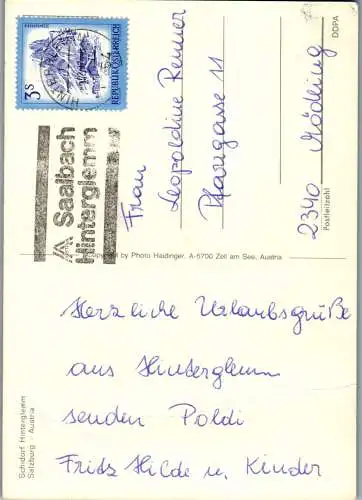 3 S
REPUBLIK ÖSTERREICH
Saalbach
Hinterglemm
Frau
Leopoldine Renner
Pfarrgasse 11
2340 Mödling
Postleitzahl
DOPA
Copyright by Photo Haidinger, A-5700 Zell am See, Austria
Herzliche Urlaubsgrüße
aus Hinterglemm
senden Poldi
Fritz Hilde u. Kinder
Schidorf Hinterglemm
Salzburg - Austria